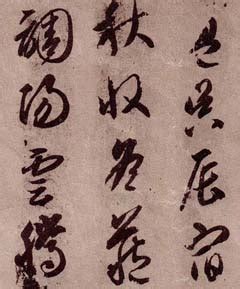 盈昃辰宿
秋收冬藏
調陽雲騰